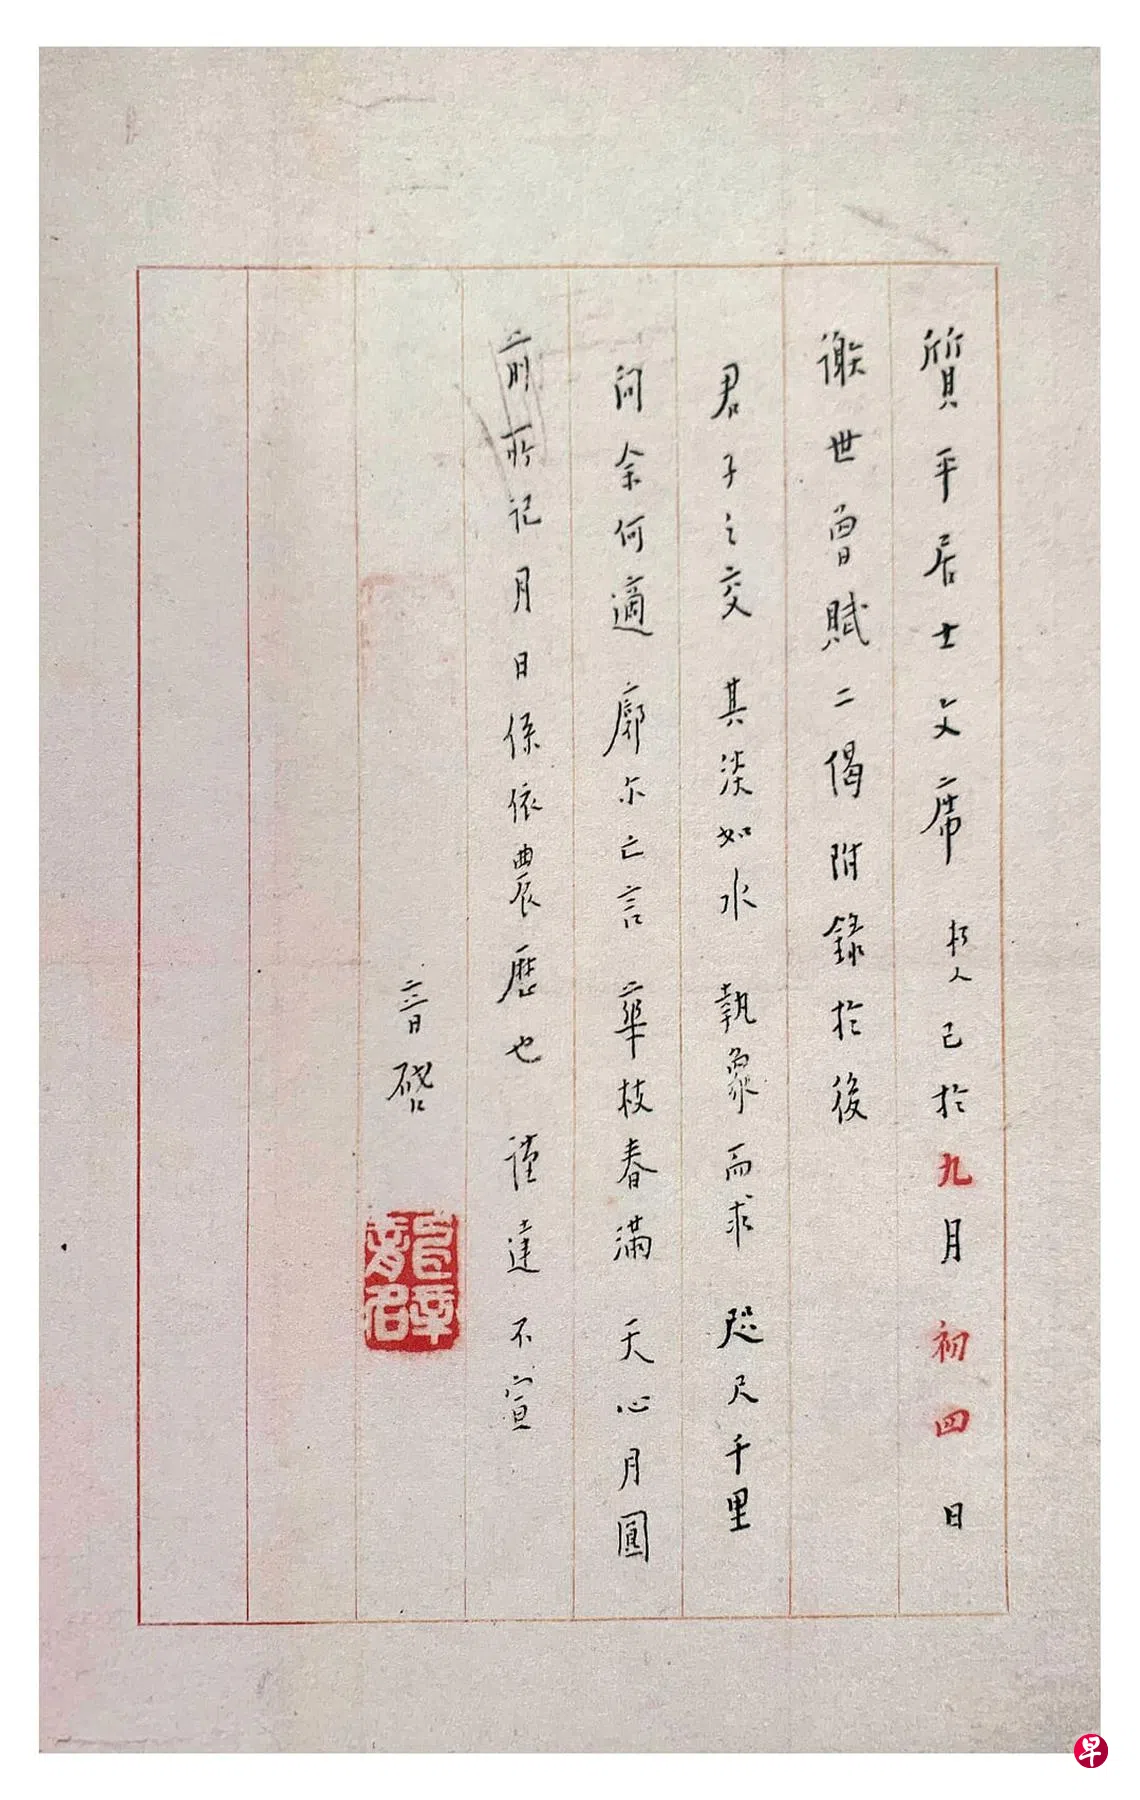 質平居士文席 朽人已於九月初四日
謝世曾賦二偈附錄於後
君子之交 其淡如水 執象而求 咫尺千里
問余何適 廓尔亡言 華枝春滿 天心月圓
前所記月日係依農歷也 謹達不宣
音啓
早